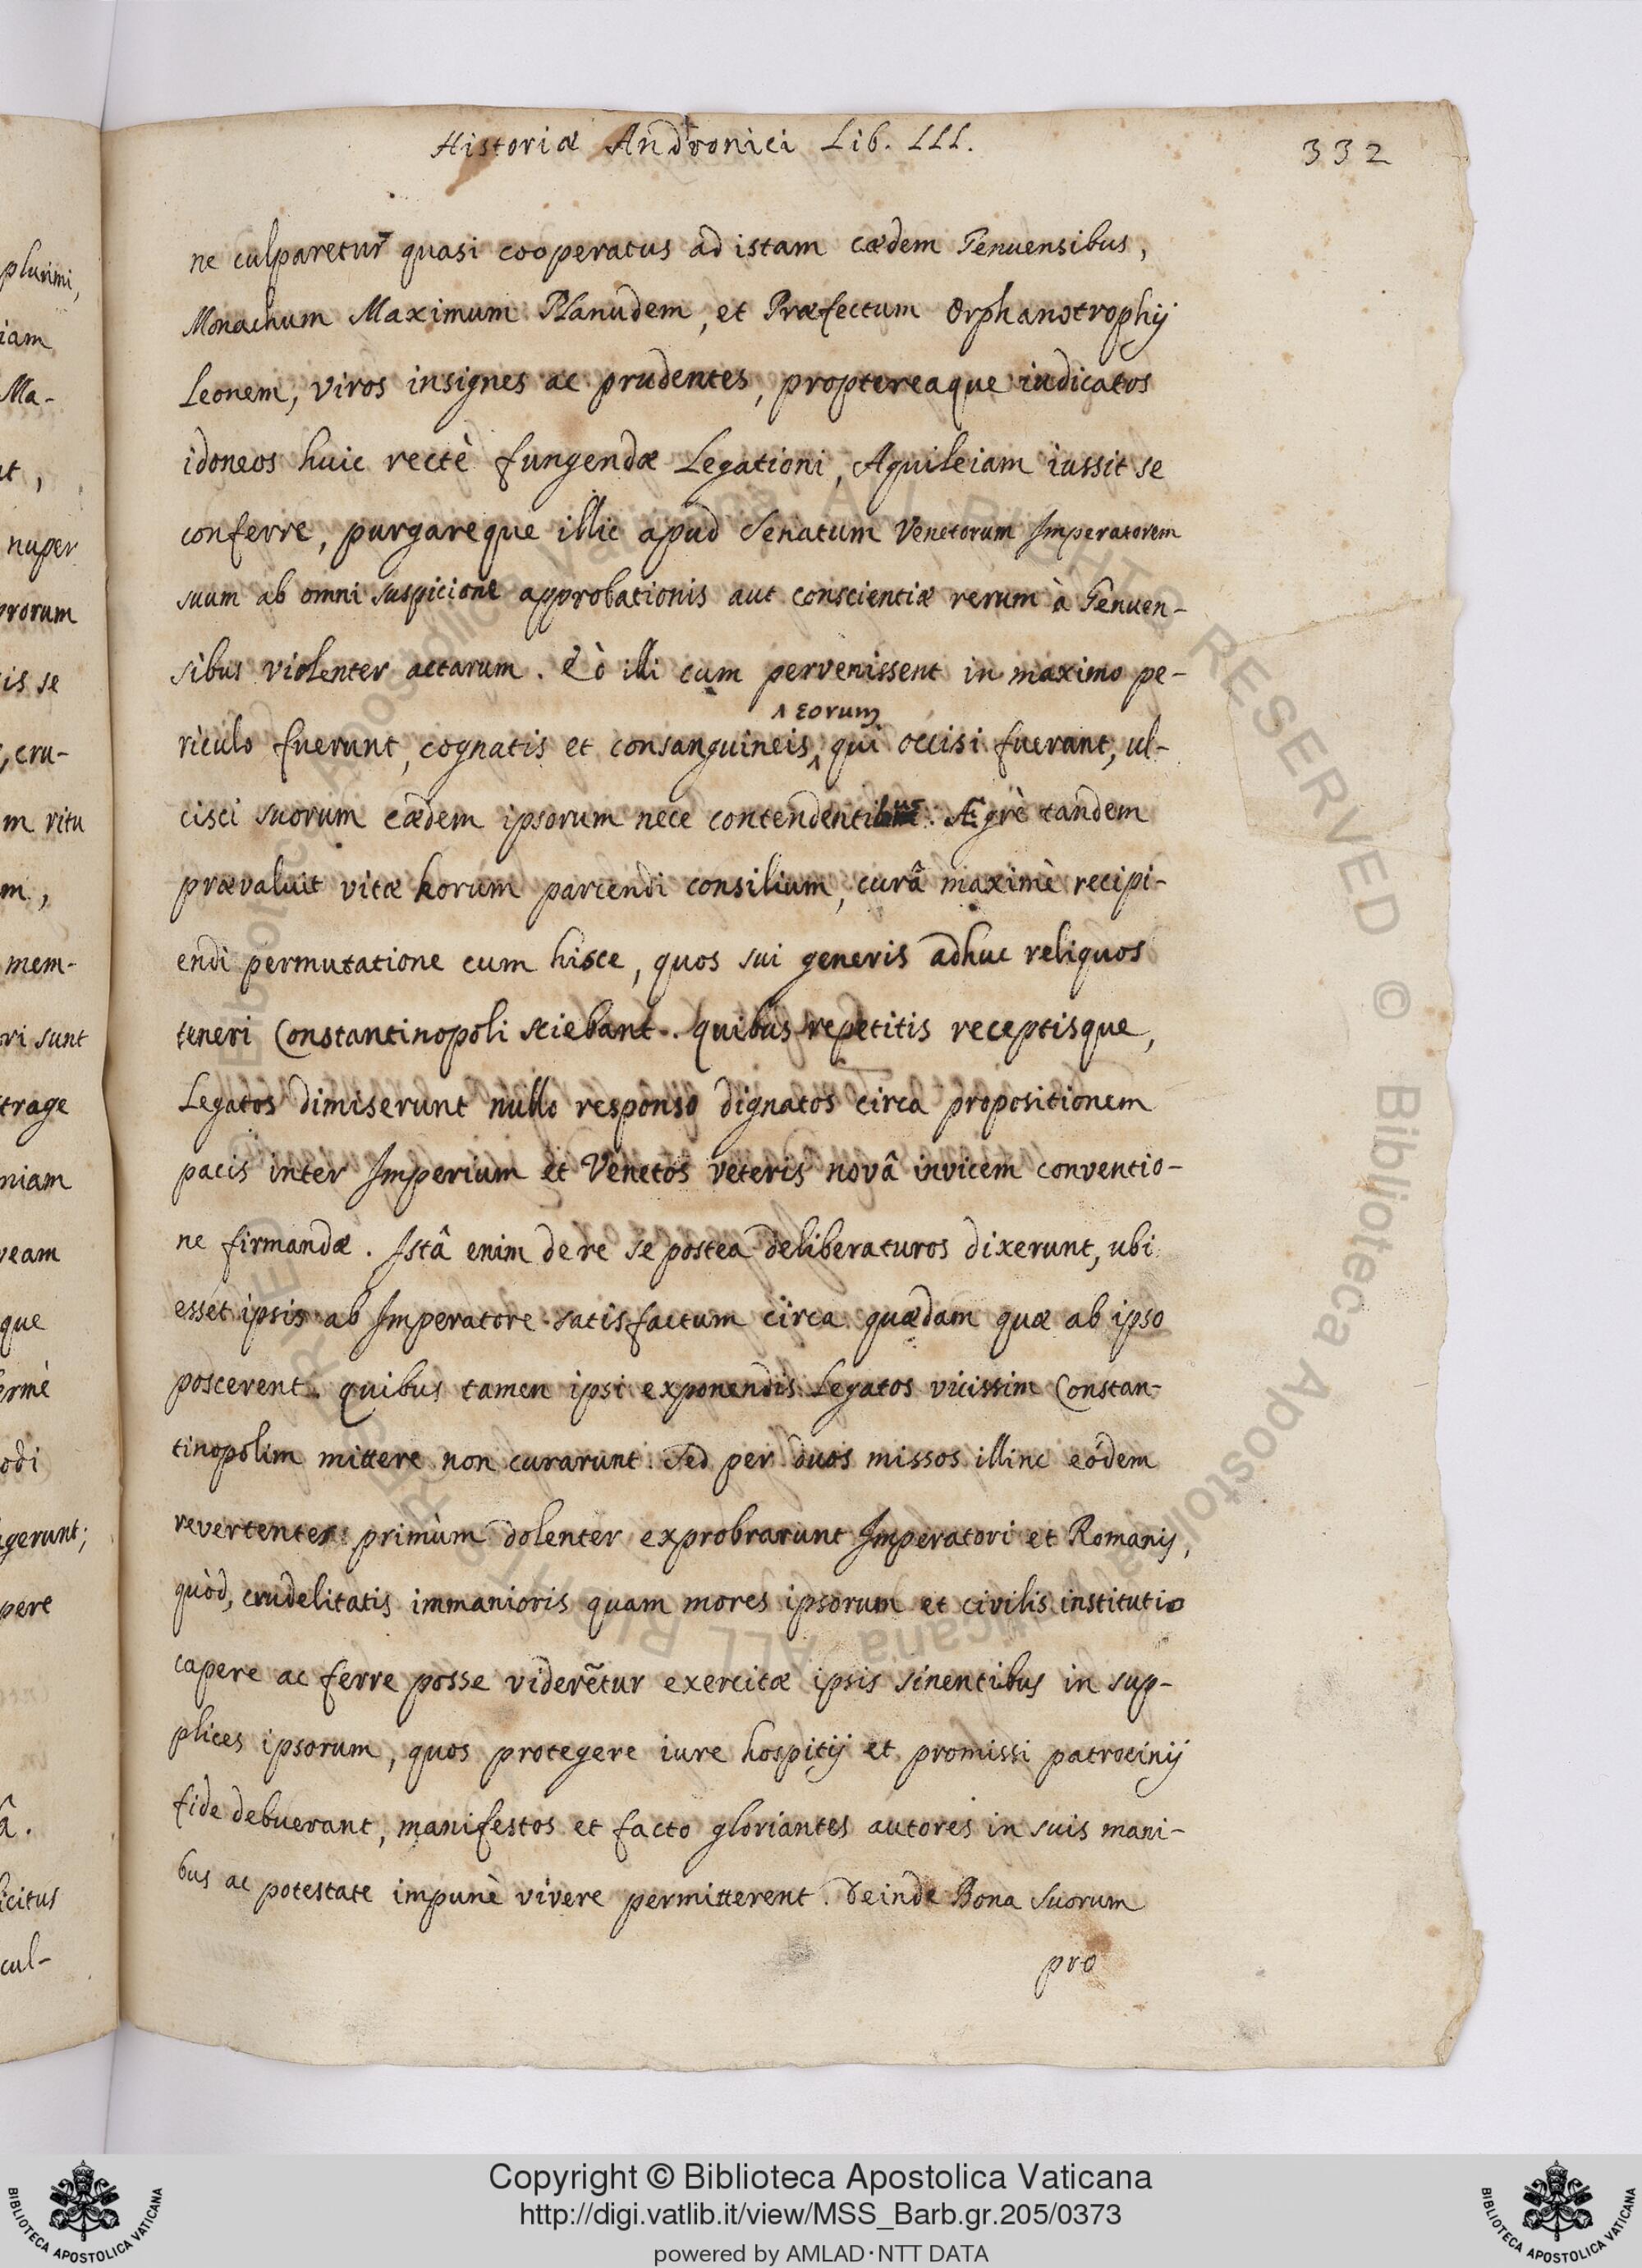 Historiæ Andronici Lib. III.
332
ne culparetur quasi cooperatus ad istam cædem Genuensibus,
Monachum Maximum Planudem, et Præfectum Orphanotrophij
Leonem, viros insignes ac prudentes, proptereaque iudicatos
idoneos huic rectè fungendæ Legationi, Aquileiam iussit se
conferre, purgareque illic apud Senatum Venetorum Imperatorem
suum ab omni suspicione approbationis aut conscientiæ rerum à Genuen-
sibus violenter actarum. Eò illi cum pervenissent in maximo pe-
^ eorum
riculo fuerunt, cognatis et consanguineis^ qui occisi fuerant, ul-
cisci suorum cædem ipsorum nece contendentibus. Ægrè tandem
prævaluit vitæ horum parcendi consilium, curâ maximè recipi-
endi permutatione cum hisce, quos sui generis adhuc reliquos
teneri Constantinopoli sciebant. quibus repetitis receptisque,
Legatos dimiserunt nullo responso dignatos circa propositionem
pacis inter Imperium et Venetos veteris novâ invicem conventio-
ne firmandæ. Istâ enim de re se postea deliberaturos dixerunt, ubi
esset ipsis ab Imperatore satisfactum circa quædam quæ ab ipso
poscerent. quibus tamen ipsi exponendis Legatos vicissim Constan-
tinopolim mittere non curarunt. Sed per duos missos illinc eódem
revertentes primùm dolenter exprobrarunt Imperatori et Romanis,
quòd, crudelitatis immanioris quam mores ipsorum et civilis institutio
capere ac ferre posse viderẽtur exercitæ ipsis sinentibus in sup-
plices ipsorum, quos protegere iure hospitij et promissi patrocinij
fide debuerant, manifestos et facto gloriantes autores in suis mani-
bus ac potestate impunè vivere permitterent. Deinde Bona suorum
pro
plurimi,
iam
Ma-
nuper
is se
, cru-
m ritu
m,
mem-
ri sunt
trage
niam
veam
que
ermè
odi
gerunt;
pere
â.
icitus
cul-
Copyright © Biblioteca Apostolica Vaticana
http://digi.vatlib.it/view/MSS_Barb.gr.205/0373
powered by AMLAD·NTT DATA
BIBLIOTECA APOSTOLICA VATICANA
BIBLIOTECA APOSTOLICA VATICANA